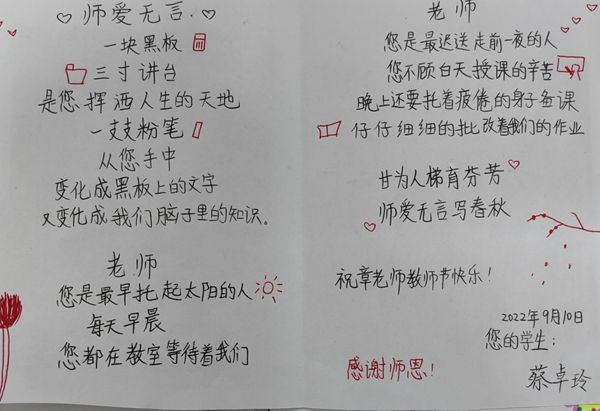 师爱无言
一块黑板
三寸讲台
是您挥洒人生的天地
一支支粉笔
从您手中
变化成黑板上的文字
又变化成我们脑子里的知识。
老师
您是最早托起太阳的人
每天早晨
您都在教室等待着我们
老师
您是最迟送走前一夜的人
您不顾白天授课的辛苦
晚上还要托着疲倦的身子备课
仔仔细细的批改着我们的作业
甘为人梯育芬芳
师爱无言写春秋
祝章老师教师节快乐！
2022年9月10日
您的学生：
蔡卓玲
感谢师恩！